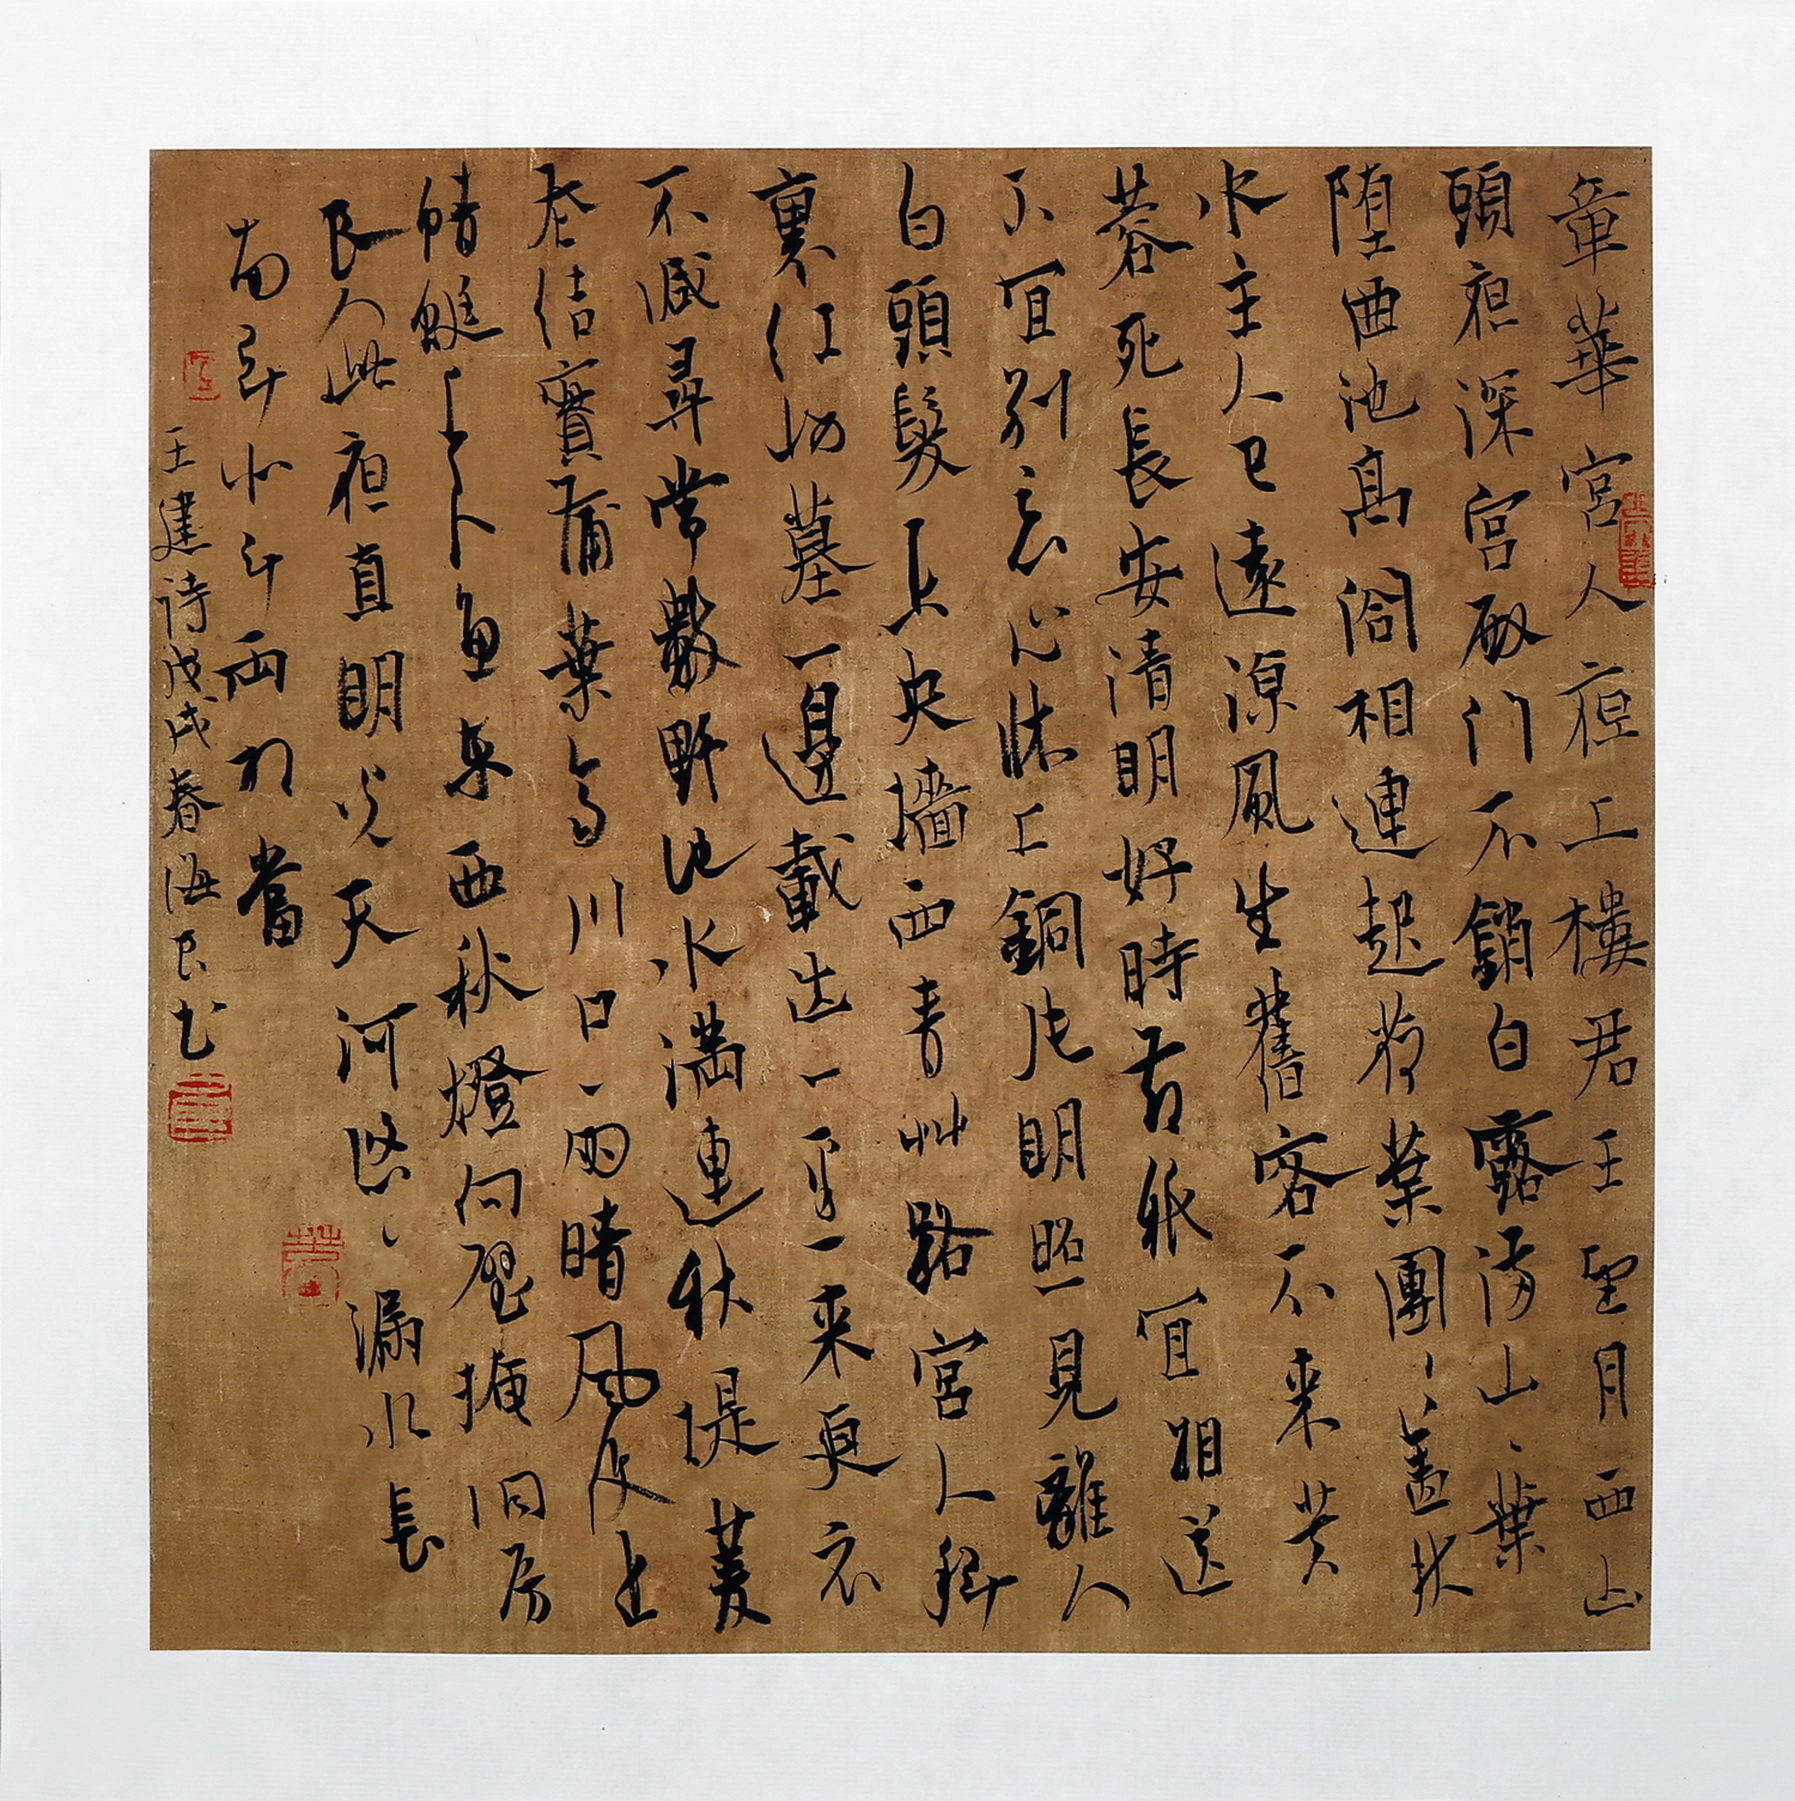 章華宮人夜上樓君王望月西山
頭夜深宮殿門不鎖白露滿山山葉
堕曲池高閣相連起荷葉團團蓋秋
水主人已遠涼風生舊客不来芙
蓉死長安清明好時節秖宜相送
不宜别惡心牀上銅片明照見離人
白頭髮未央墻西青艸路宮人斜
裏紅妝墓一邊載出一邊来更衣
不减尋常數野池水滿連秋堤菱
花结實蒲葉齊川口雨晴風復止
蜻蜓上下魚東西秋燈向壁掩旧房
良人此夜直明光天河悠悠漏水長
南斗北斗兩相當
王建诗戊戌春海